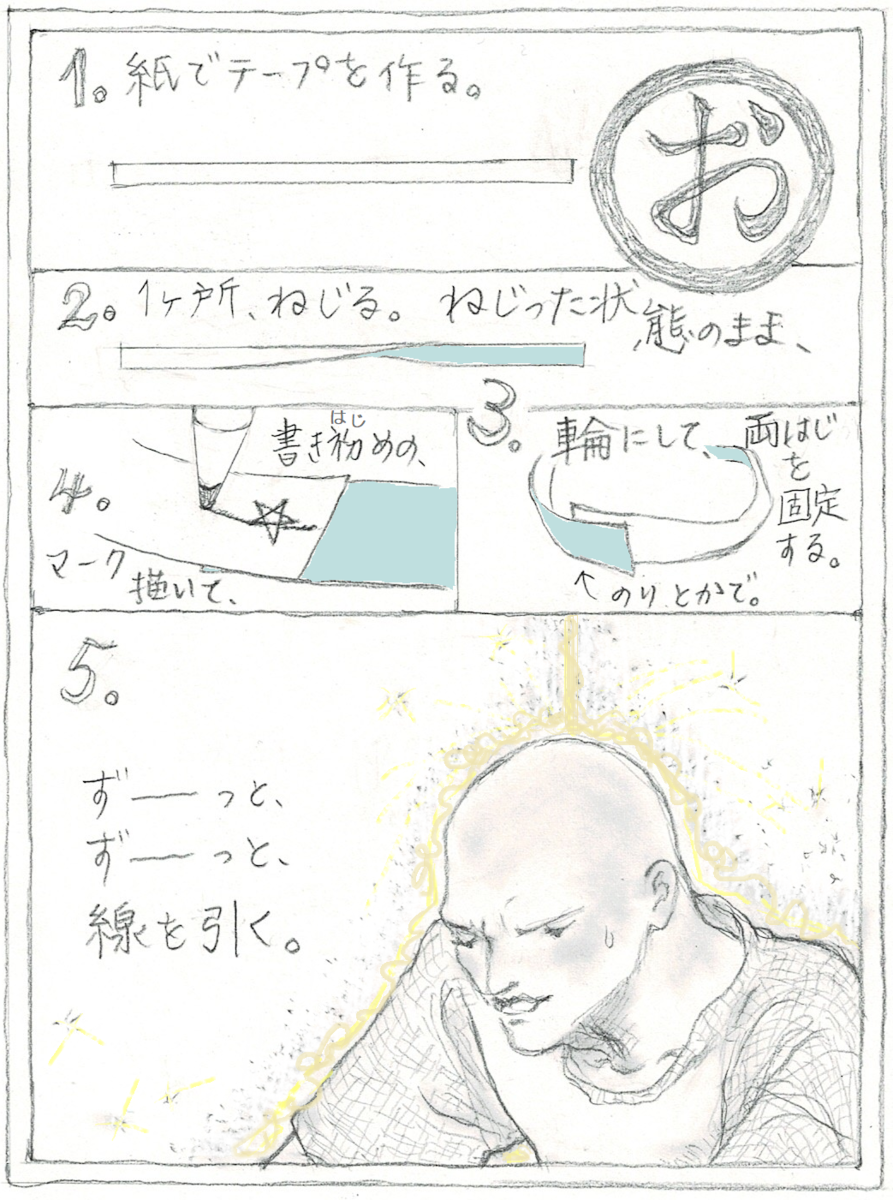 1. 紙でテープを作る。
お
2. 1ヶ所、ねじる。 ねじった状態のまま、
3. 輪にして、両はじを固定する。
↑のりとかで。
4. 書き初めの、
はじ
マーク描いて、
5.
ずーーっと、
ずーーっと、
線を引く。